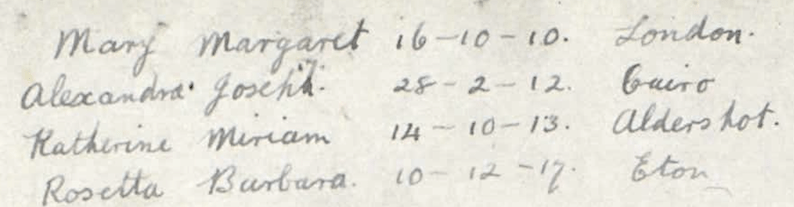 Mary Margaret 16-10-10. London.
Alexandra Joseph. 28-2-12. Cairo
Katherine Miriam 14-10-13. Aldershot.
Rosetta Barbara. 10-12-17. Eton